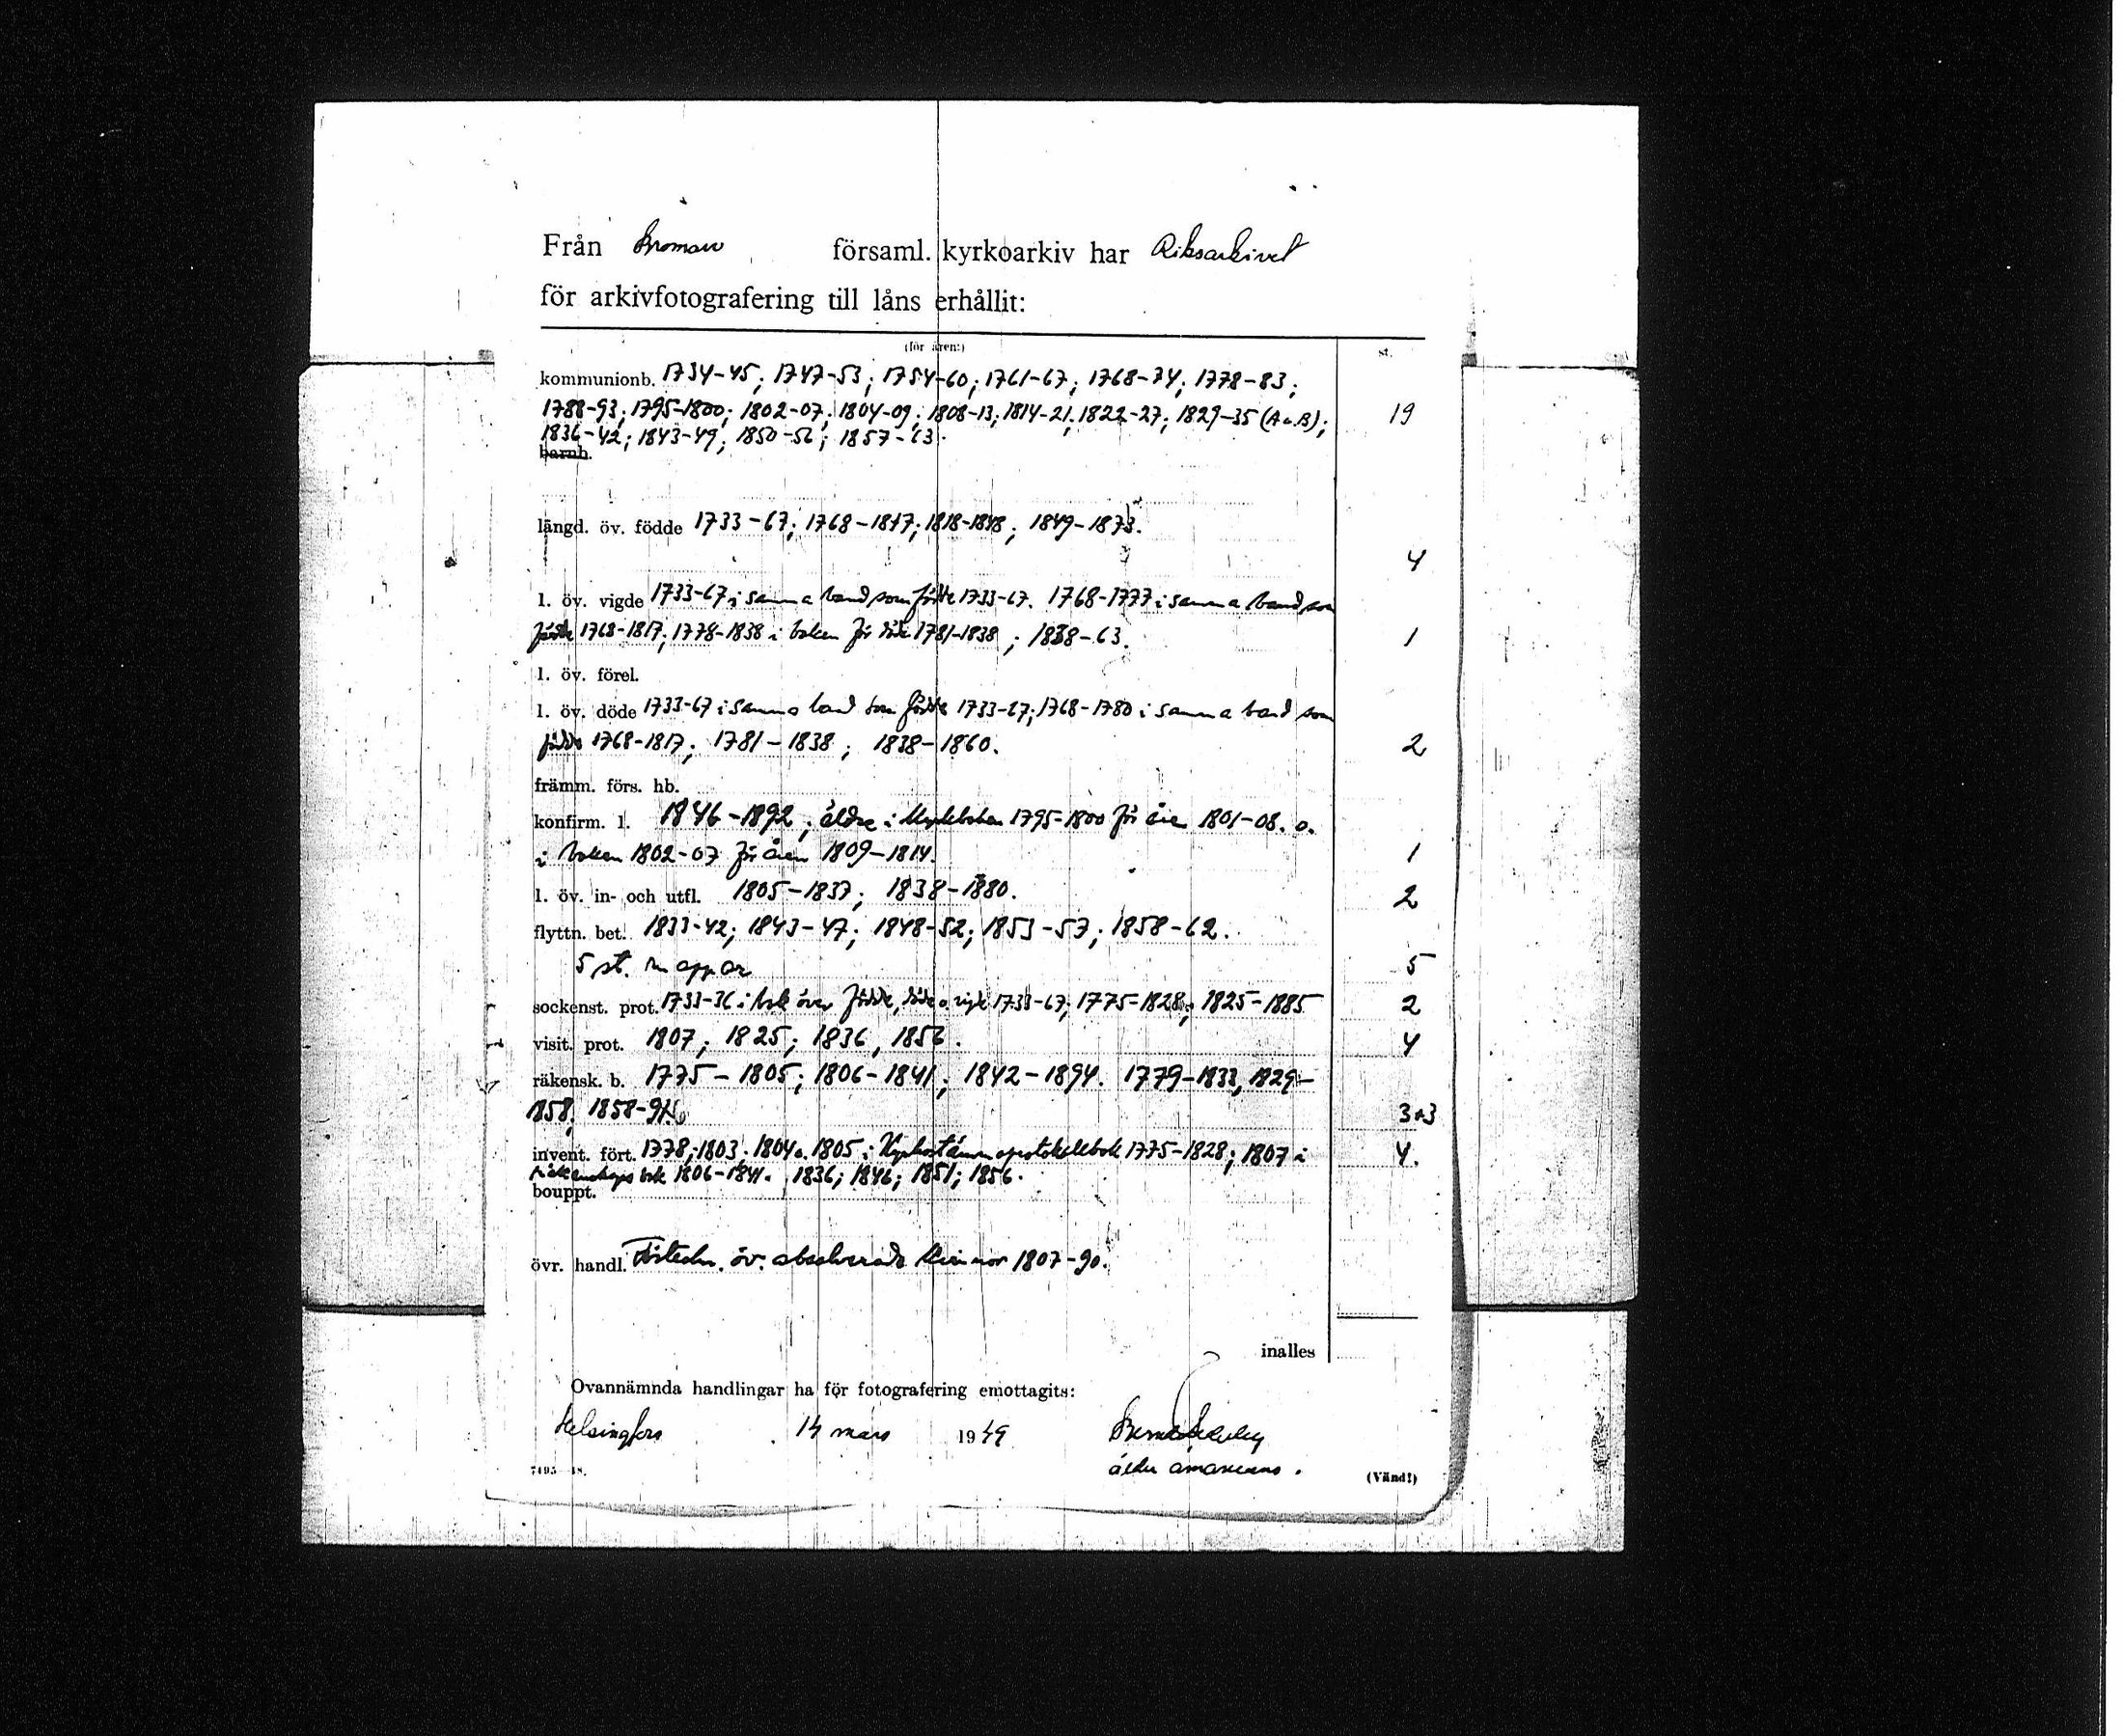 Från Bromarv församl. kyrkoarkiv har Riksarkivet
för arkivfotografering till låns erhållit:
(för åren:) st.
kommunionb. 1734-45; 1747-53; 1754-60; 1761-67; 1768-74; 1778-83;
1788-93; 1795-1800; 1802-07; 1804-09; 1808-13; 1814-21; 1822-27; 1829-35 (A o. B); 19
1836-42; 1843-49; 1850-56; 1857-63.
barnb.
längd. öv. födde 1733-67; 1768-1817; 1818-1848; 1849-1873.
4
l. öv. vigde 1733-67 i samma band som födde 1733-67. 1768-1777 i samma band som
födde 1768-1817; 1778-1838 i boken för döde 1781-1838; 1838-63. 1
l. öv. förel.
l. öv. döde 1733-67 i samma band som födde 1733-67; 1768-1780 i samma band som
födde 1768-1817; 1781-1838; 1838-1860. 2
främm. förs. hb.
konfirm. l. 1846-1892; äldre i 1795-1800 för åren 1801-08. o.
i boken 1802-07 för åren 1809-1814. 1
l. öv. in- och utfl. 1805-1837; 1838-1880. 2
flyttn. bet. 1833-42; 1843-47; 1848-52; 1853-57; 1858-62.
5 st. mappar 5
sockenst. prot. 1733-36 i bok över födde, döde o. vigde 1733-67; 1775-1828; 1825-1885 2
visit. prot. 1807; 1825; 1836, 1856. 4
räkensk. b. 1775-1805; 1806-1841; 1842-1894. 1779-1833, 1829-
1858, 1858- 3+3
invent. fört. 1778; 1803; 1804 o. 1805 i Kyrkostämmoprotokollsbok 1775-1828; 1807 i 4.
räkenskapsbok 1806-1841. 1836; 1846; 1851; 1856.
bouppt.
övr. handl. Förteckn. öv. absolverade kvinnor 1807-90.
inalles
Ovannämnda handlingar ha för fotografering emottagits:
Helsingfors 14 mars 1949
äldre amanuens.
(Vänd!)